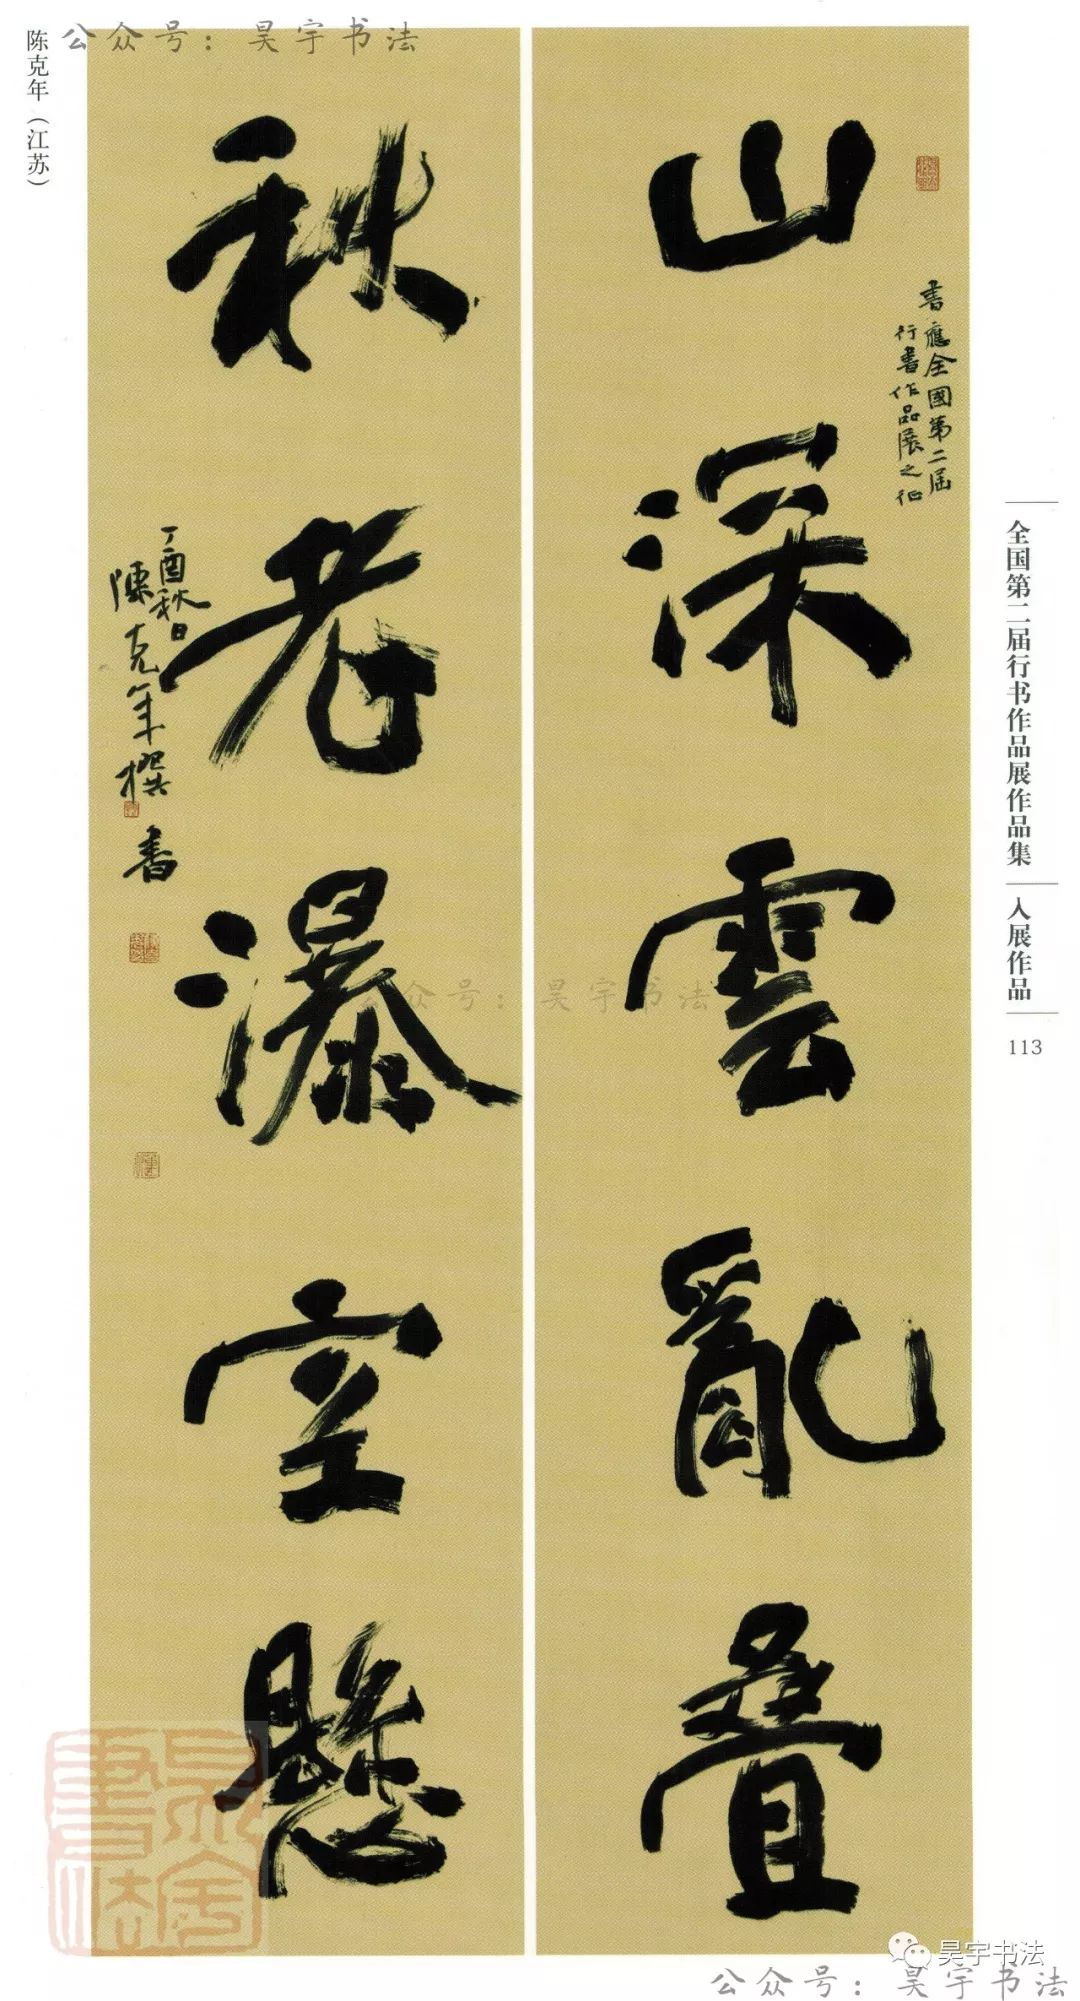 公众号：昊宇书法
陈克年（江苏）
山深雲亂疊
書應全國第二屆
行書作品展之征
秋老瀑空懸
丁酉秋日
陳克年撰書
全国第二届行书作品展作品集
入展作品
113
公众号：昊宇书法
昊宇书法
公众号：昊宇书法